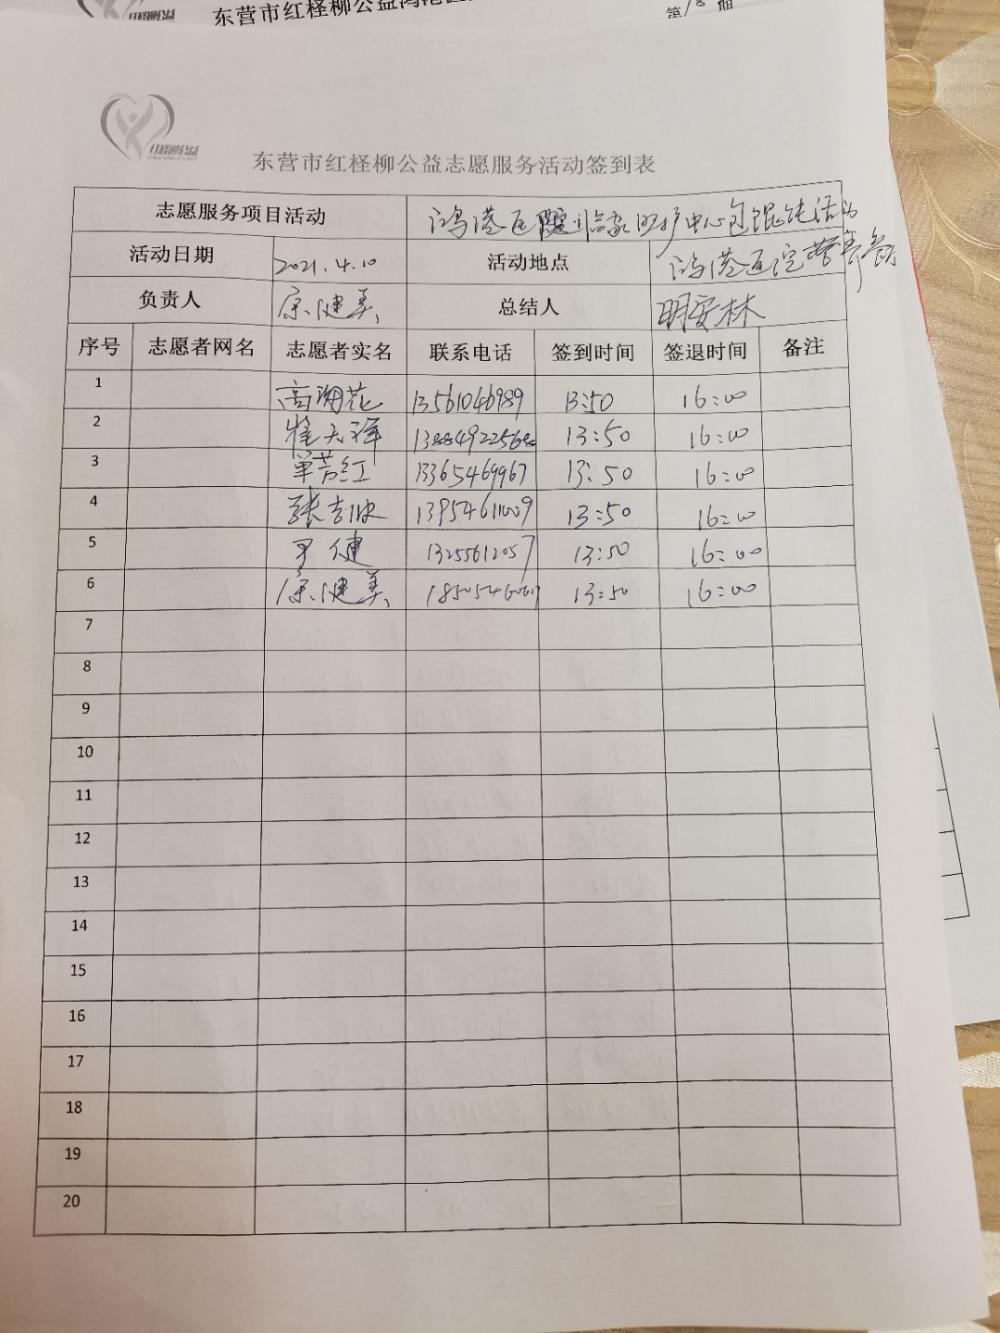 东营市红柽柳公益
第18期
红柽柳公益
东营市红柽柳公益志愿服务活动签到表
志愿服务项目活动 鸿港医院临家照护中心包馄饨活动
活动日期 2021.4.10 活动地点 鸿港医院营养餐厅
负责人 康健美 总结人 明安林
序号 志愿者网名 志愿者实名 联系电话 签到时间 签退时间 备注
1 高湘花 13561046989 13:50 16:00
2 13:50 16:00
3 单芳红 13365469967 13:50 16:00
4 13954611009 13:50 16:00
5 健 13255612057 13:50 16:00
6 康健美 13:50 16:00
7
8
9
10
11
12
13
14
15
16
17
18
19
20